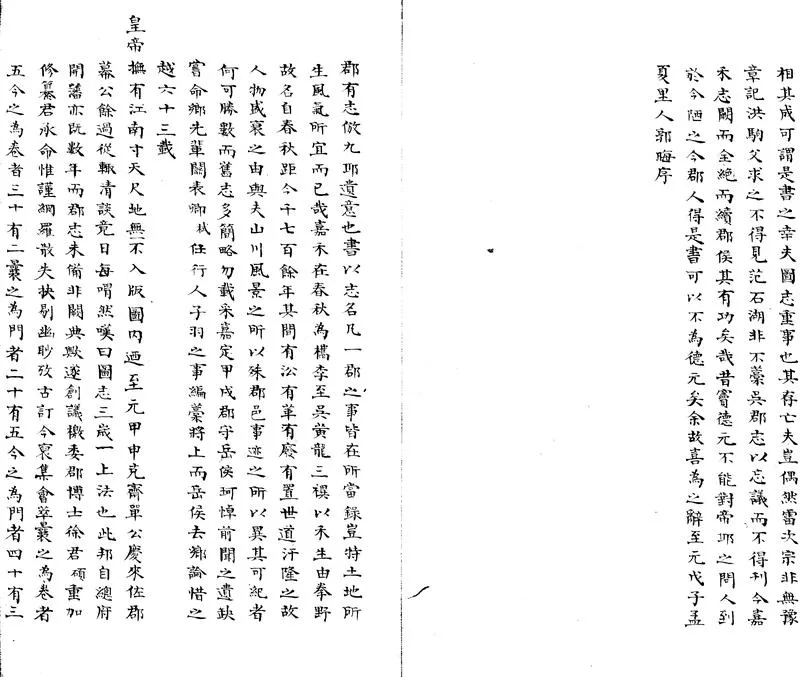 相其成可謂是書之幸夫圖志重事也其存亡夫豈偶然雷次宗非無豫
章記洪駒父求之不得見范石湖非不藁吳郡志以忘議而不得刊今嘉
禾志闕而全絶而續郡侯其有功矣哉昔竇德元不能對帝耶之問人到
於今陋之今郡人得是書可以不為德元矣余故喜為之辭至元戊子孟
夏里人郭晦序
郡有志倣九耶遺意也書以志名凡一郡之事皆在所當錄豈特土地所
生風氣所宜而已哉嘉禾在春秋為檇李至吳黃龍三禩以禾生由拳野
故名自春秋距今千七百餘年其間有沿有革有廢有置世道汙隆之故
人物盛衰之由與夫山川風景之所以殊郡邑事迹之所以異其可紀者
何可勝數而舊志多簡略勿載采嘉定甲戌郡守岳侯珂悼前聞之遺缺
嘗命鄉先輩關表卿栻任行人子羽之事編藁將上而岳侯去鄉論惜之
越六十三載
皇帝撫有江南寸天尺地無一不入版圖內迺至元甲申克齋單公慶來佐郡
幕公餘過從輒清談竟日每喟然嘆曰圖志三歲一上法也此邦自總府
開藩亦既數年而郡志未備非闕典歟遂創議檄委郡博士徐君碩重加
修纂君承命惟謹網羅散失抉剔幽眇攷古訂今裒集會萃曩之為卷者
五今之為卷者三十有二曩之為門者二十有五今之為門者四十有三